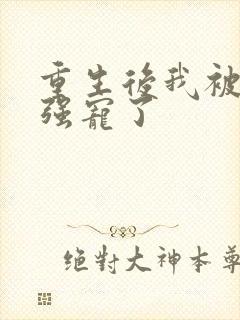 重生後我被
强寵了
絕對大神本尊